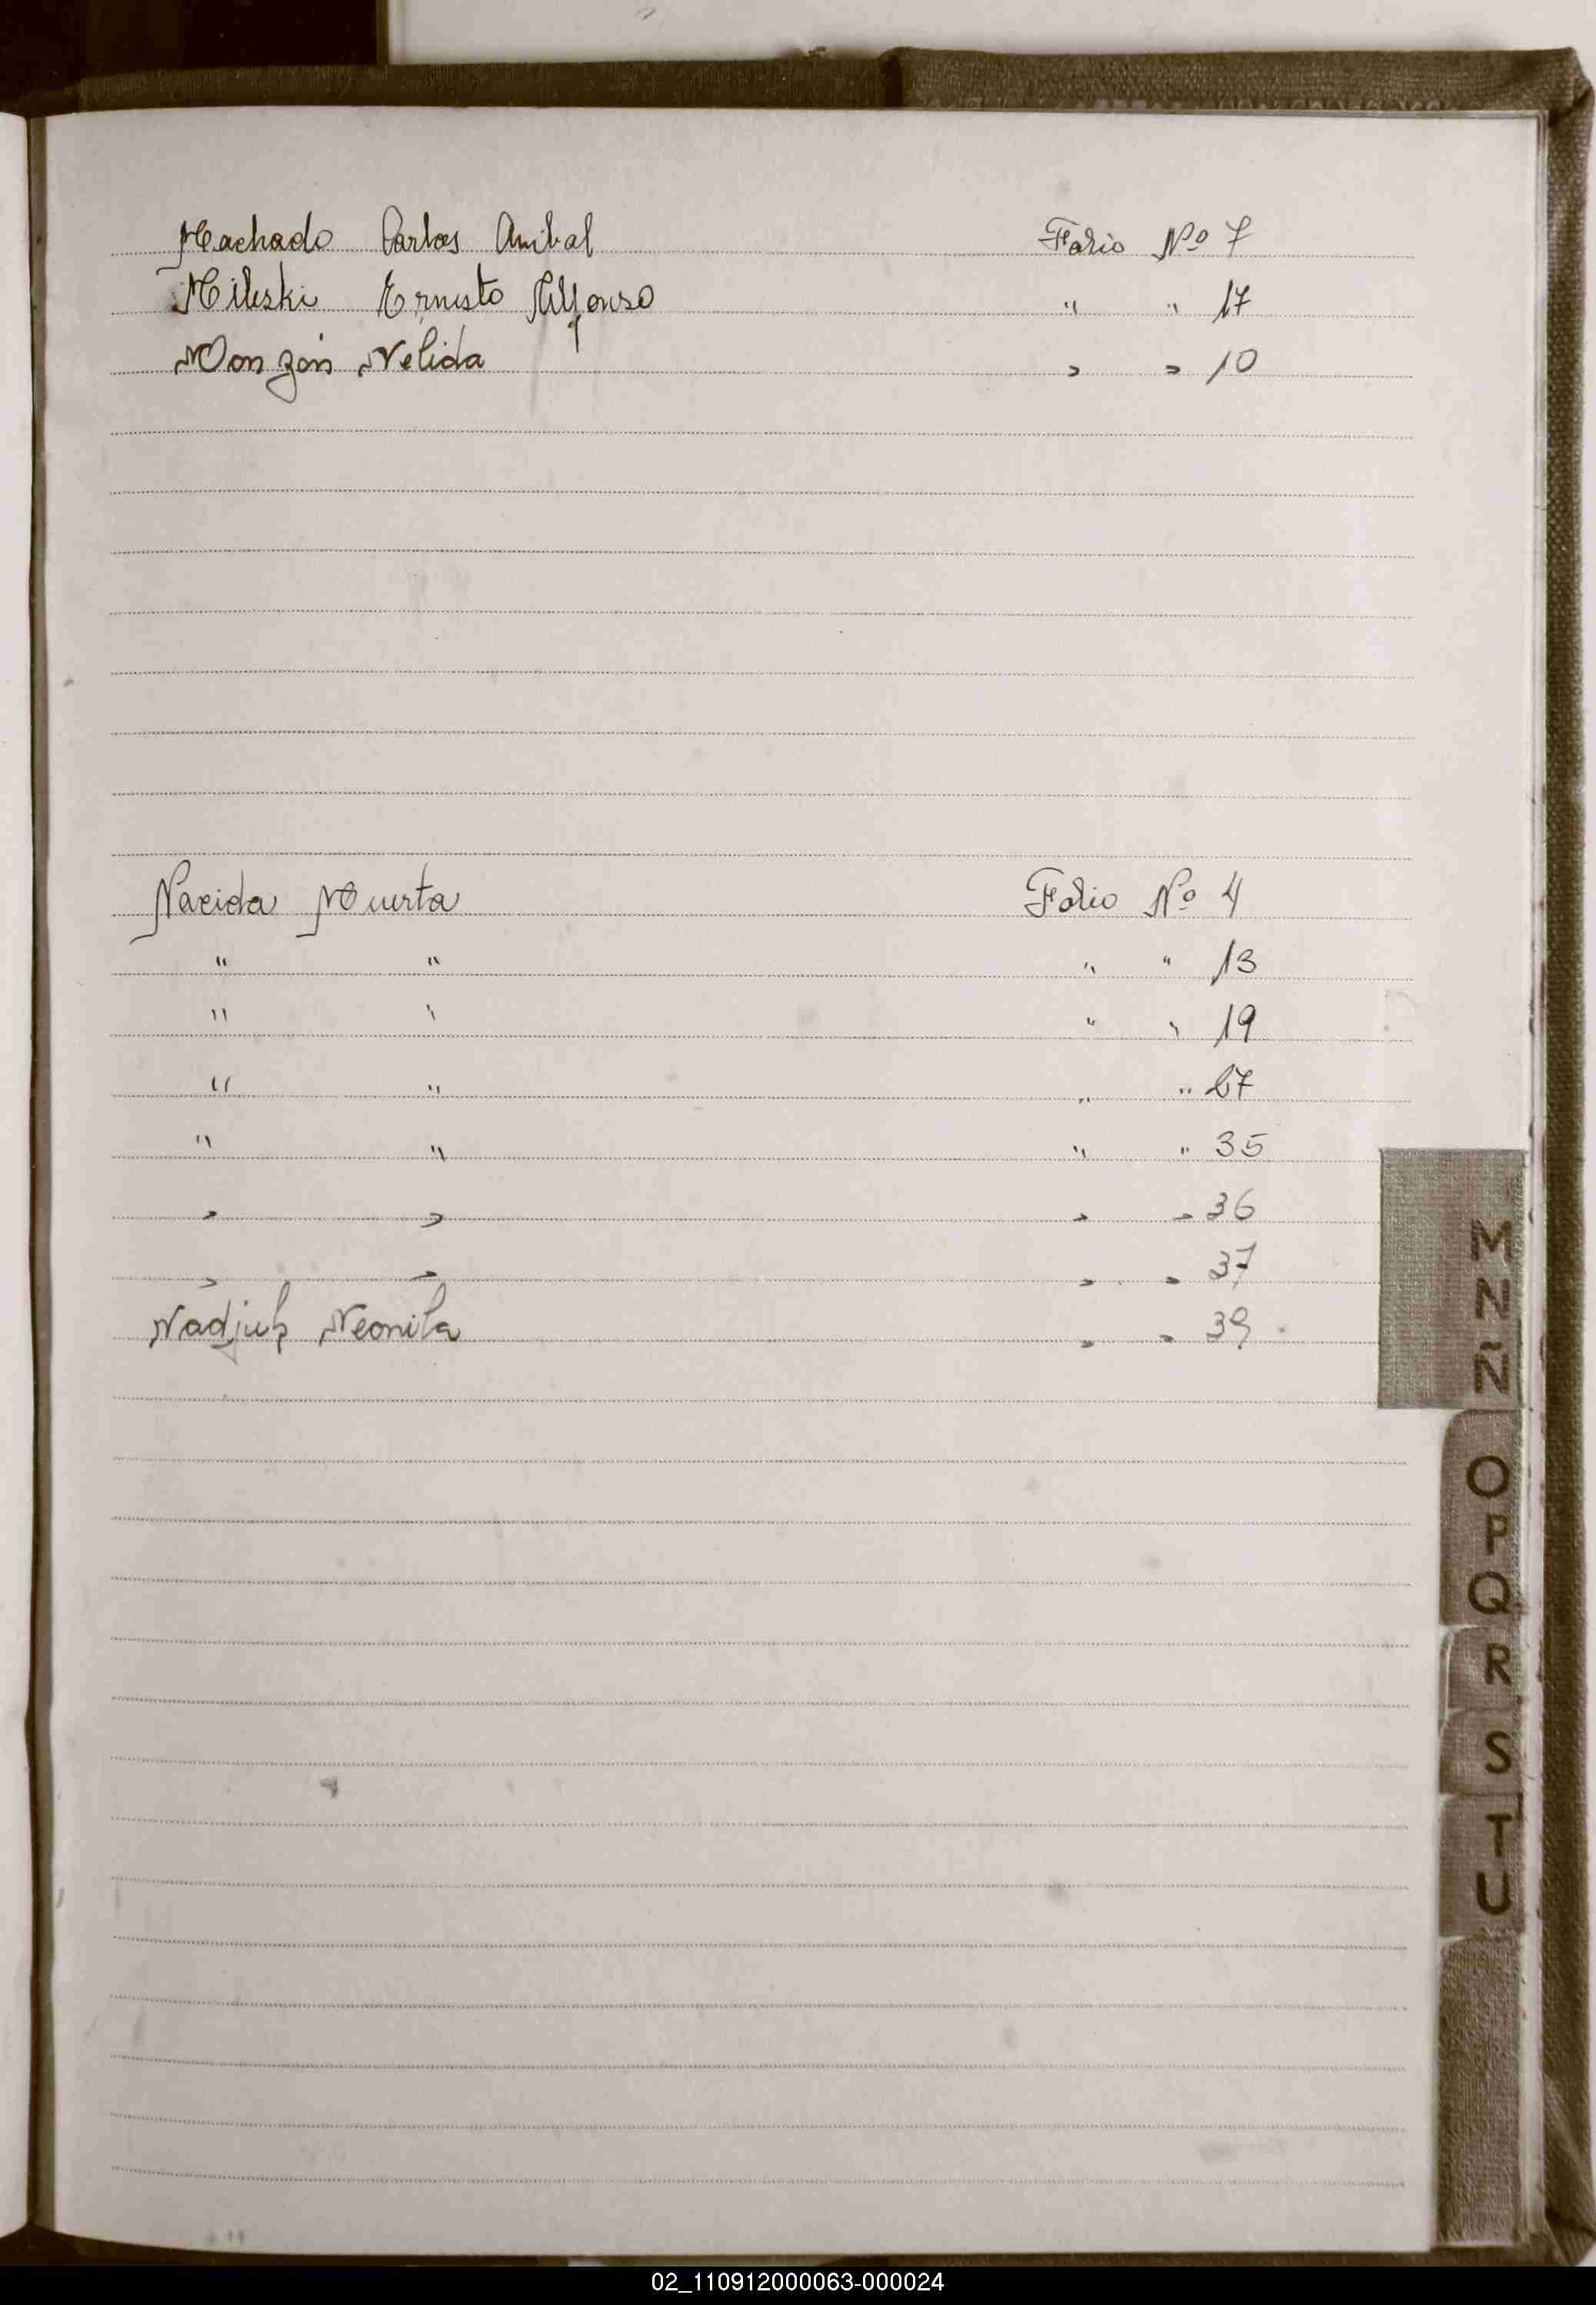 Machado Carlos Anibal Folio Nº 7
Mileski Ernesto Alfonso " " 17
Monzón Nelida " " 10
Nacida Muerta Folio Nº 4
" " " " 13
" " " " 19
" " " " 27
" " " " 35
" " " " 36
" " " " 37
Nadjuk Neonila " " 39
M
N
Ñ
O
P
Q
R
S
T
U
02_110912000063-000024